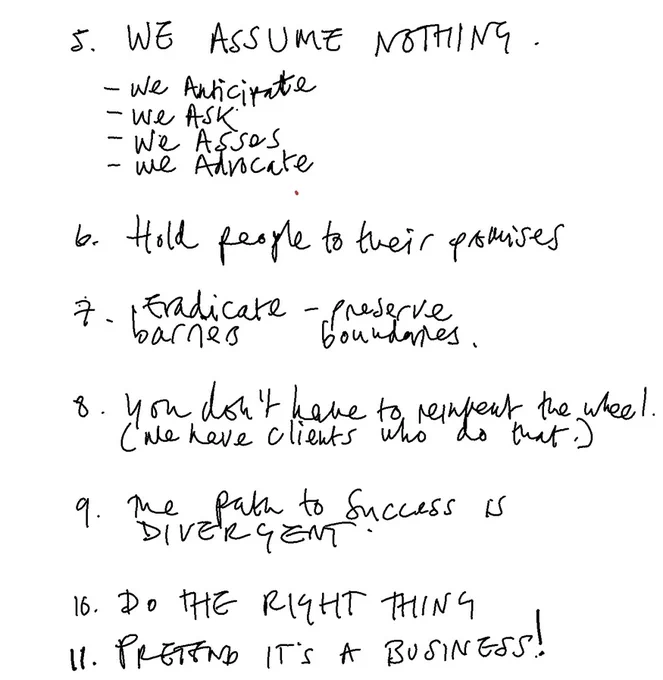 5. WE ASSUME NOTHING.
- We Anticipate
- We ASK
- We Asses
- we Advocate
6. Hold people to their promises
7. Eradicate - preserve
barriers boundaries.
8. you don't have to reinvent the wheel.
(We have clients who do that.)
9. The path to success is
DIVERGENT.
10. DO THE RIGHT THING
11. PRETEND IT'S A BUSINESS!